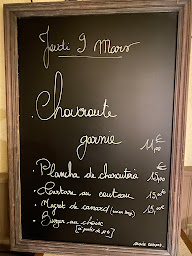 Jeudi 9 Mars
Chouxroute
garnie 11€
. Plancha de charcuterie 15,00
. Tartare au couteau 15,00
. Magret de canard 19,00
. Burger au choix
(à partir de 14€)